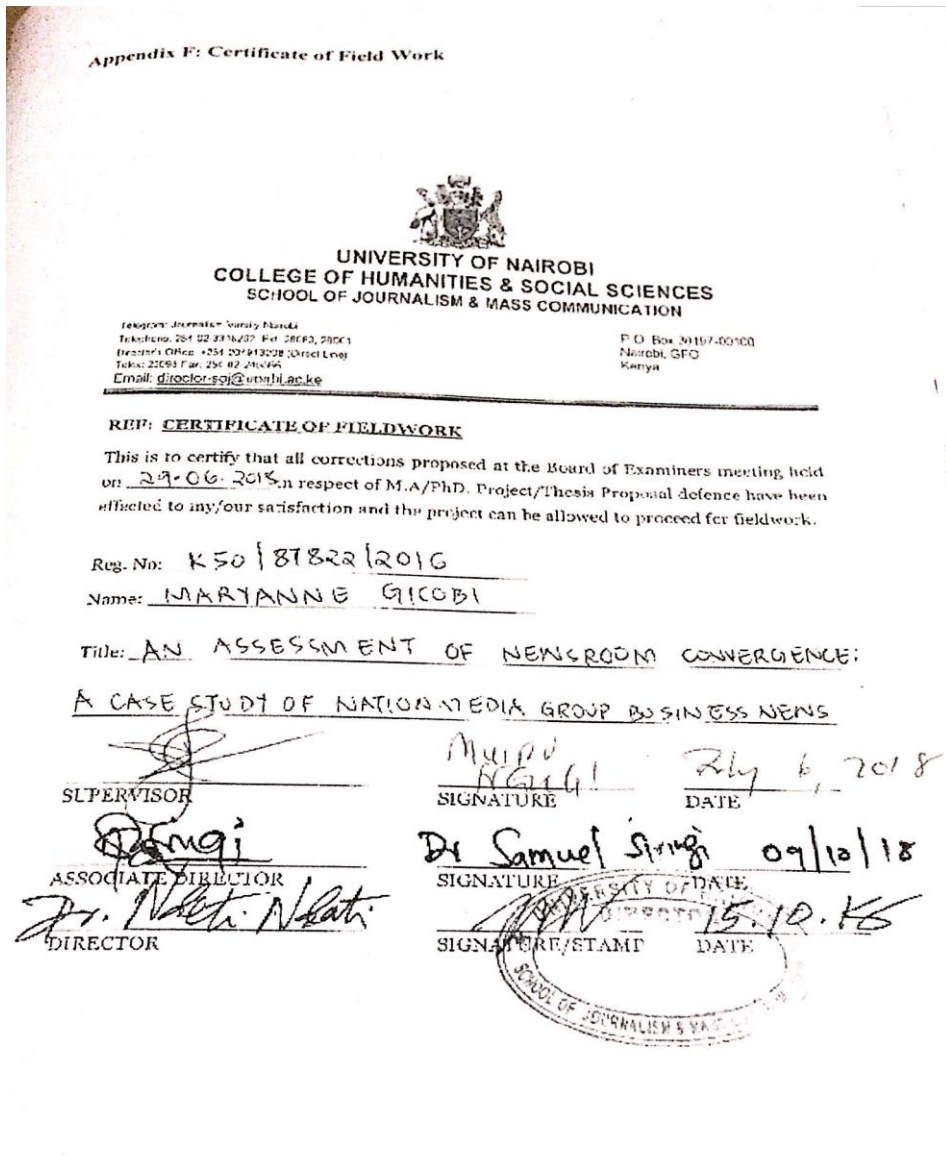 Appendix F: Certificate of Field Work
UNIVERSITY OF NAIROBI
COLLEGE OF HUMANITIES & SOCIAL SCIENCES
SCHOOL OF JOURNALISM & MASS COMMUNICATION
Telegram: Journalism Varsity Nairobi
Telephone: 254 02
Director's Office: (Direct Line)
Telex: 22095 Fax: 254 02
Email: director-soj@uonbi.ac.ke
P.O. Box 30197-00100
Nairobi, GPO
Kenya
REF: CERTIFICATE OF FIELDWORK
This is to certify that all corrections proposed at the Board of Examiners meeting held
on 29-06-2018 in respect of M.A/PhD. Project/Thesis Proposal defence have been
effected to my/our satisfaction and the project can be allowed to proceed for fieldwork.
Reg. No: K50/87822/2016
Name: MARYANNE GICOBI
Title: AN ASSESSMENT OF NEWSROOM CONVERGENCE:
A CASE STUDY OF NATION MEDIA GROUP BUSINESS NEWS
NGUGI 6, 2018
SUPERVISOR SIGNATURE DATE
Dr Samuel Siringi 09/10/18
ASSOCIATE DIRECTOR SIGNATURE DATE
Dr. Ndeti Ndati 15.10.18
DIRECTOR SIGNATURE/STAMP DATE
UNIVERSITY OF
DIRECTOR
SCHOOL OF JOURNALISM &